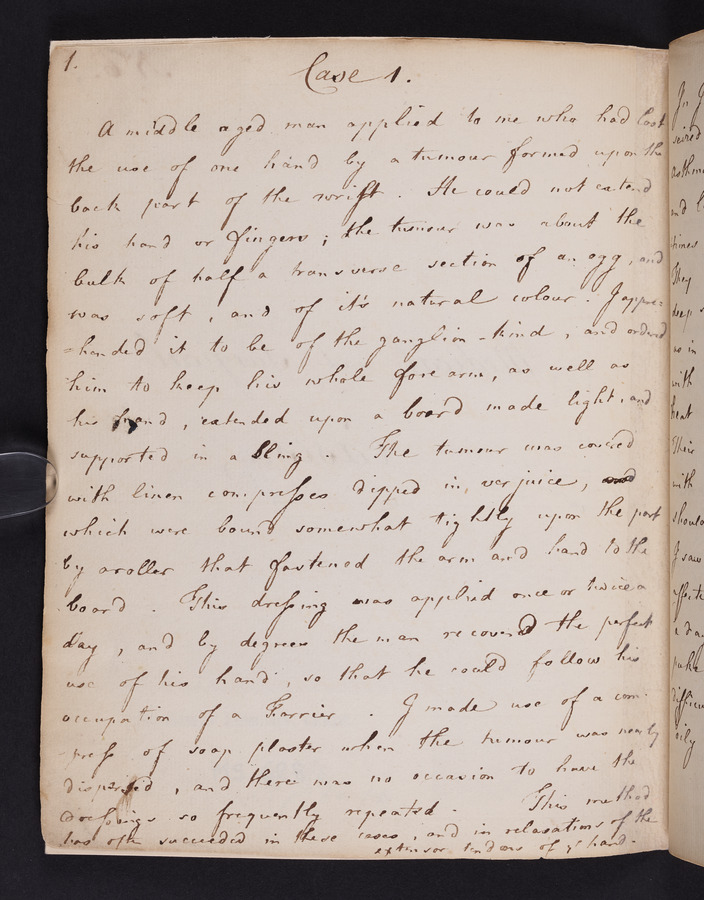 1.
Case 1.
A middle aged man applied to me who had lost
the use of one hand by a tumour formed upon the
back part of the wrist. He could not extend
his hand or fingers; the tumour was about the
bulk of half a transverse section of an egg, and
was soft, and of it's natural colour. I appre-
=hended it to be of the ganglion-kind, and ordered
him to keep his whole fore arm, as well as
his hand, extended upon a board made light, and
supported in a Sling. The tumour was covered
with linen compresses dipped in verjuice,
which were bound somewhat tightly upon the part
by a roller that fastened the arm and hand to the
board. This dressing was applied once or twice a
day, and by degrees the man recovered the perfect
use of his hand, so that he could follow his
occupation of a Farrier. I made use of a com-
-press of soap plaster when the tumour was nearly
dispersed, and there was no occasion to have the
dressings so frequently repeated. This method
has often succeeded in these cases, and in relaxations of the
extensor tendons of ye hand.